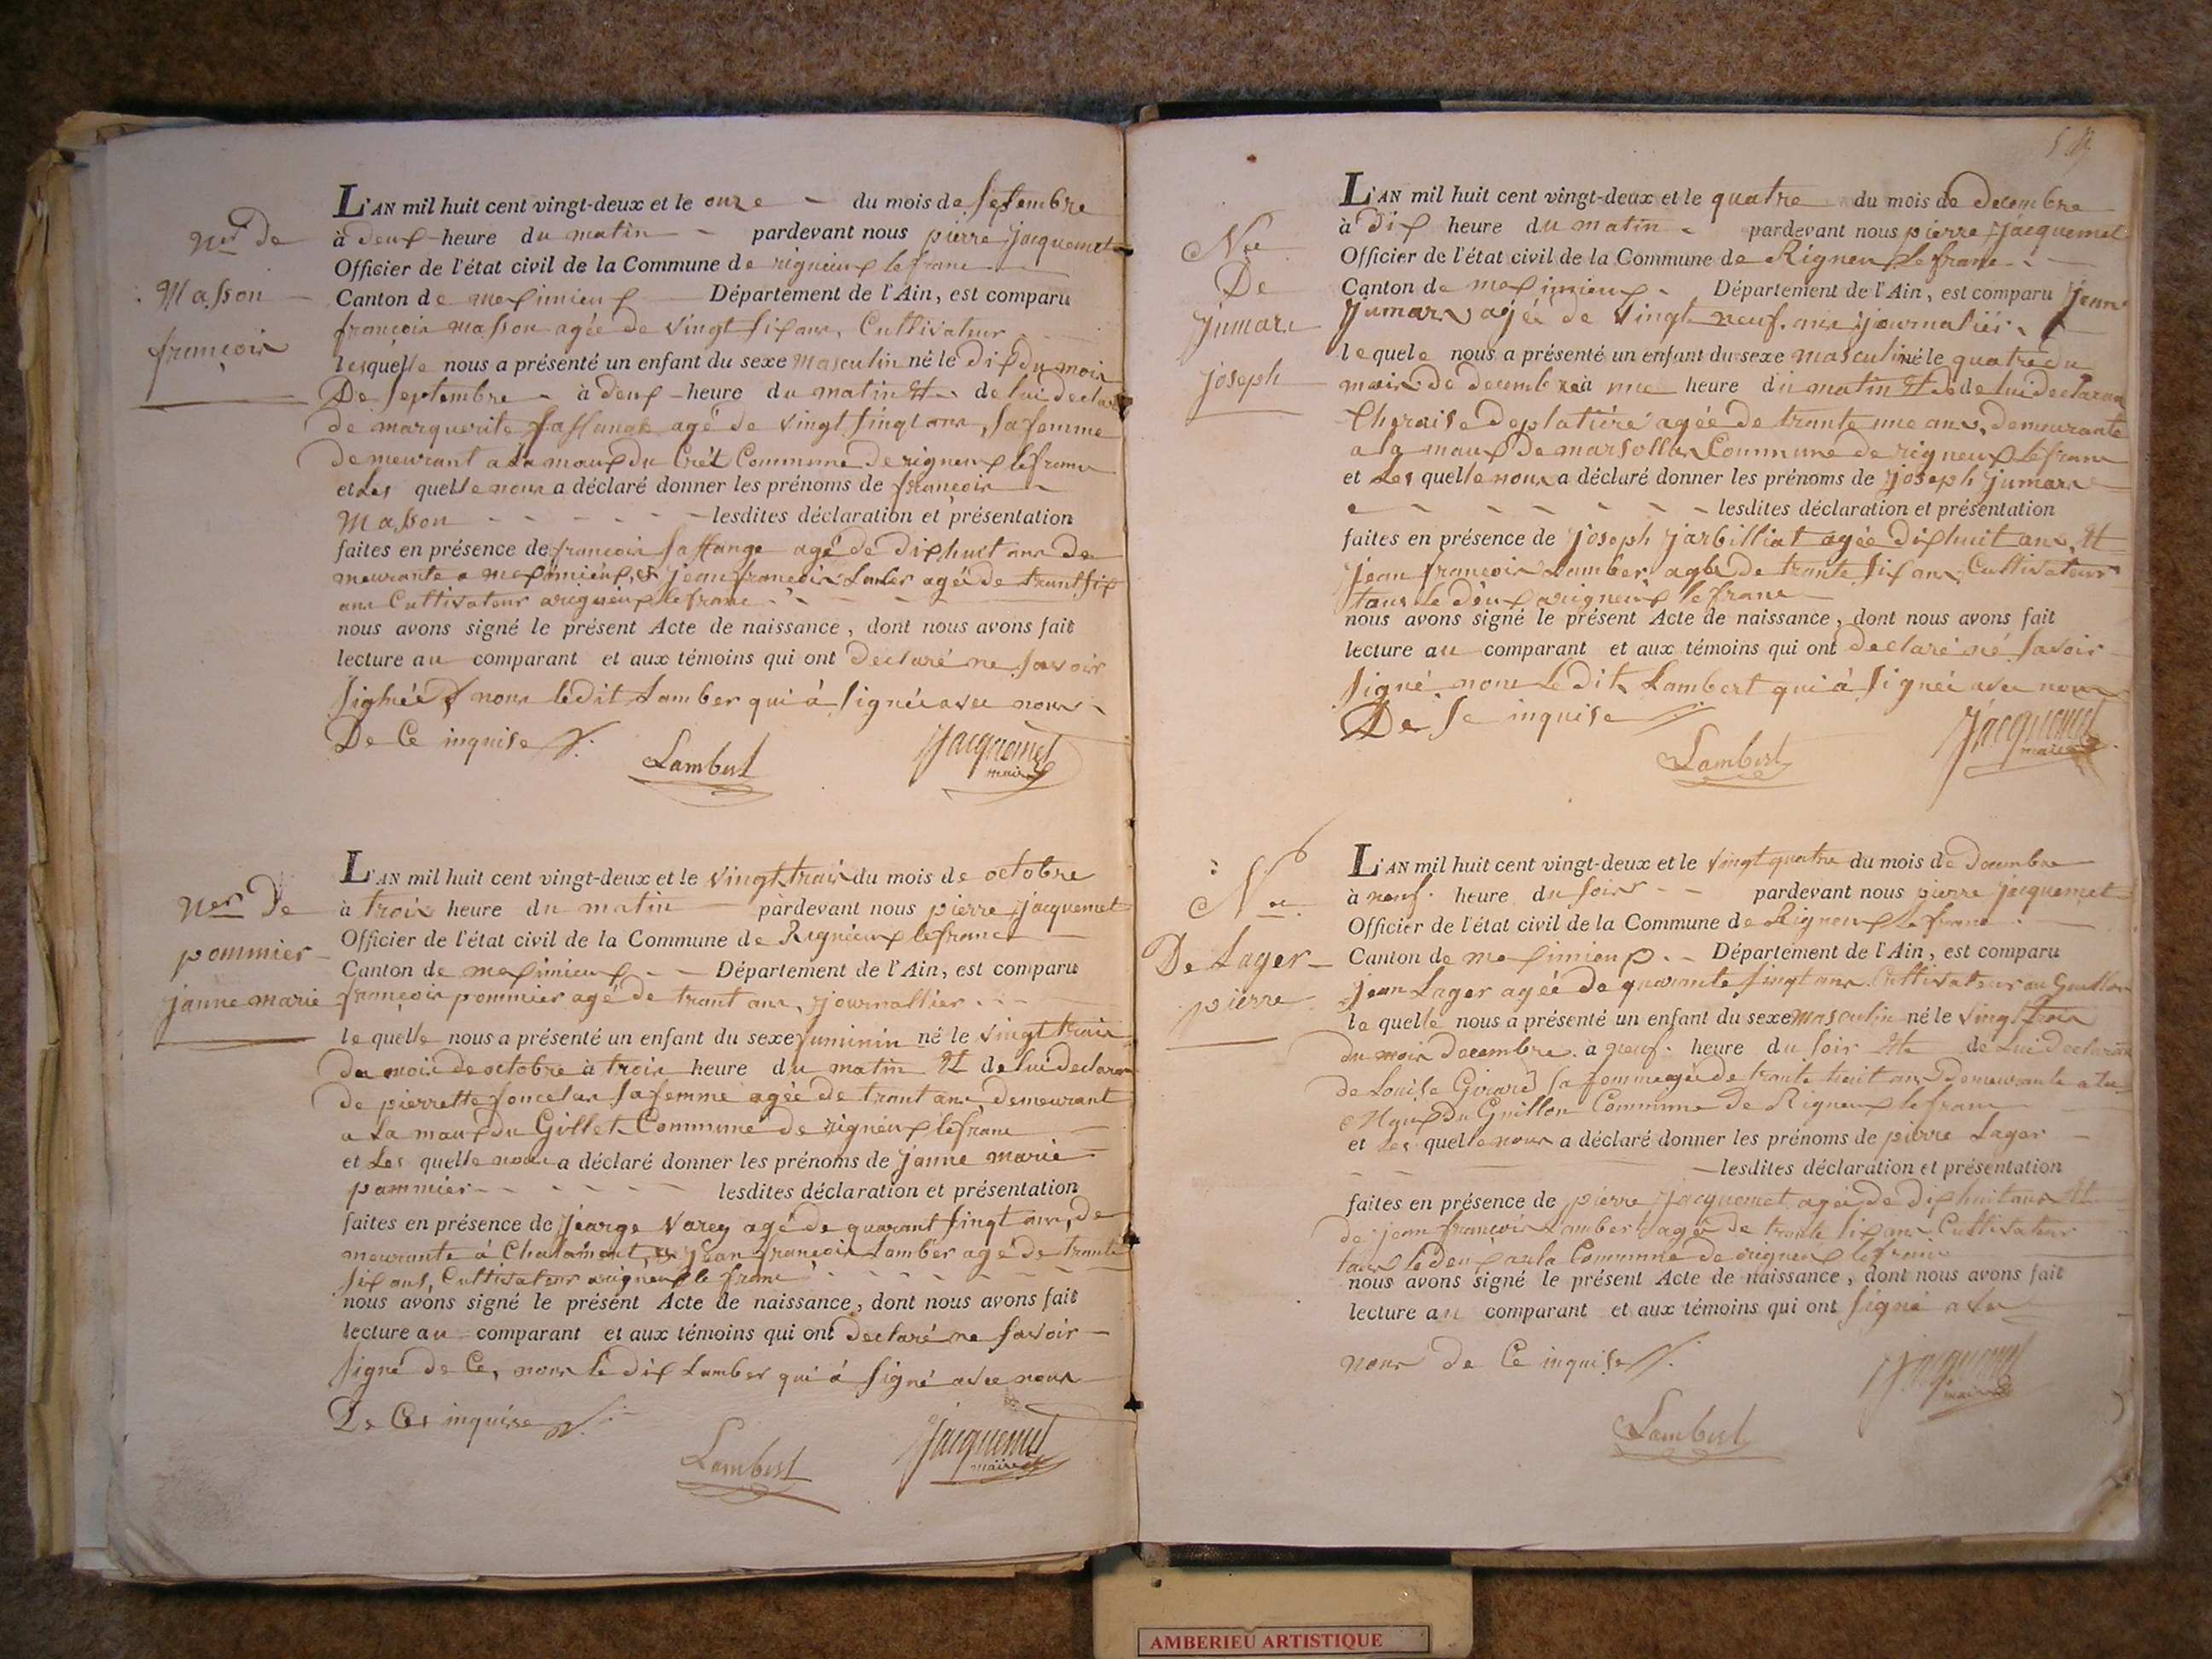 ner de
Masson
françois
L'AN mil huit cent vingt-deux et le onze du mois de septembre
à deux heure du matin pardevant nous pierre jacquemet
Officier de l'état civil de la Commune de rigneiux lefranc
Canton de meximieux Département de l'Ain, est comparu
françois masson agée de vingt six ans, Cultivateur
lesquelle nous a présenté un enfant du sexe masculin né le dix du mois
De septembre à deux heure du matin de lui declaré
de marguerite agé de vingt sinq ans, sa femme
demeurant a la maux du Crét Commune de rigneux lefranc
et les quelle nous a déclaré donner les prénoms de françois
Masson lesdites déclaration et présentation
faites en présence de francois agé de dixhuit ans de
meurante a meximieux, et jean francois Lamber agé de trant six
ans Cultivateur arigneiux lefranc
nous avons signé le présent Acte de naissance, dont nous avons fait
lecture au comparant et aux témoins qui ont declaré ne savoir
signée nous ledit Lamber qui à signée avec nous
De Ce inquise
Lambert Jacquemet
maire
ner De
pommier
janne marie
L'AN mil huit cent vingt-deux et le vingt trois du mois de octobre
à trois heure du matin pardevant nous pierre jacquemet
Officier de l'état civil de la Commune de Rignéiux lefranc
Canton de meximieux Département de l'Ain, est comparu
françois pommier agé de trant ans, journallier
le quelle nous a présenté un enfant du sexe fuminin né le vingt trois
du mois de octobre à trois heure du matin de lui declaré
de pierrette sa femme agée de trant ans demeurant
a la maux du Gillet Commune de rignéux lefranc
et les quelle nous a déclaré donner les prénoms de janne marie
pommier lesdites déclaration et présentation
faites en présence de jéarge Varey agé de quarant sinqt ans, de
meurante à Chalamont, et jean francois Lamber agé de trante
six ans, Cultivateur arigneux le franc
nous avons signé le présent Acte de naissance, dont nous avons fait
lecture au comparant et aux témoins qui ont declaré ne savoir
signé de Ce, nous le dix Lamber qui à signé avec nous
De Ces inquise
Lambert Jacquemet
maire
Nce
De
Jumare
joseph
L'AN mil huit cent vingt-deux et le quatre du mois de decembre
à dix heure du matin pardevant nous pierre jacquemet
Officier de l'état civil de la Commune de Rigneux le franc
Canton de meximieux Département de l'Ain, est comparu jean
Jumare agée de vingt neuf ans journaliér
le quele nous a présenté un enfant du sexe masculin né le quatre du
mois de decembre à une heure du matin de lui declaré
Theraise deplatiére agée de trante une ans, demeurante
a la maux De marsolla, Commune de rigneux lefranc
et les quelle nous a déclaré donner les prénoms de joseph jumare
lesdites déclaration et présentation
faites en présence de joseph jarbilliat agée dixhuit ans, et
jean françois Lamber agée de trante six ans Cultivateur
tous le déux arigneux lefranc
nous avons signé le présent Acte de naissance, dont nous avons fait
lecture au comparant et aux témoins qui ont declaré né savoir
signé nous le dit Lambert qui à signée avec nous
De Se inquise
Lambert Jacquemet
maire
Nce
De Lager
pierre
L'AN mil huit cent vingt-deux et le vingt quatre du mois de decembre
à neuf heure du soir pardevant nous pierre jacquemet
Officier de l'état civil de la Commune de Rigneux le franc
Canton de meximieux Département de l'Ain, est comparu
jean Lager agée de quarante sinqt ans Cultivateur au Guillon
le quelle nous a présenté un enfant du sexe masculin né le vingt trois
du mois decembre a neuf heure du soir de Lui declaré
de Louise Girard sa femme agée de trante huit ans demeurante a la
Maux Du Guillon Commune de Rigneux lefranc
et les quelle nous a déclaré donner les prénoms de pierre Lager
lesdites déclaration et présentation
faites en présence de pierre jacquemet agée de dixhuit ans et
de jean françois Lamber agée de trante six ans Cultivateur
tous le deux a la Commune de rigneux lefranc
nous avons signé le présent Acte de naissance, dont nous avons fait
lecture au comparant et aux témoins qui ont signé avec
nous de Ce inquise
Lambert Jacquemet
maire
AMBERIEU ARTISTIQUE